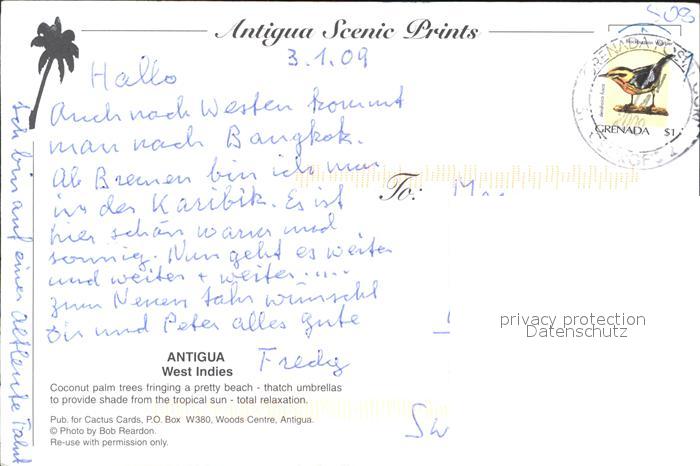 Antigua Scenic Prints
3.1.09
Hallo
Auch nach Westen kommt
man nach Bangkok.
Ab Bremen bin ich nun
in der Karibik. Es ist
hier schön warm und
sonnig. Nun geht es weiter
und weiter + weiter.....
zum Neuen Jahr wünscht
Dir und Peter alles Gute
Fredy
Ich bin auf einer Fahrt
To:
GRENADA $1
privacy protection
Datenschutz
ANTIGUA
West Indies
Coconut palm trees fringing a pretty beach - thatch umbrellas
to provide shade from the tropical sun - total relaxation.
Pub. for Cactus Cards, P.O. Box W380, Woods Centre, Antigua.
© Photo by Bob Reardon.
Re-use with permission only.